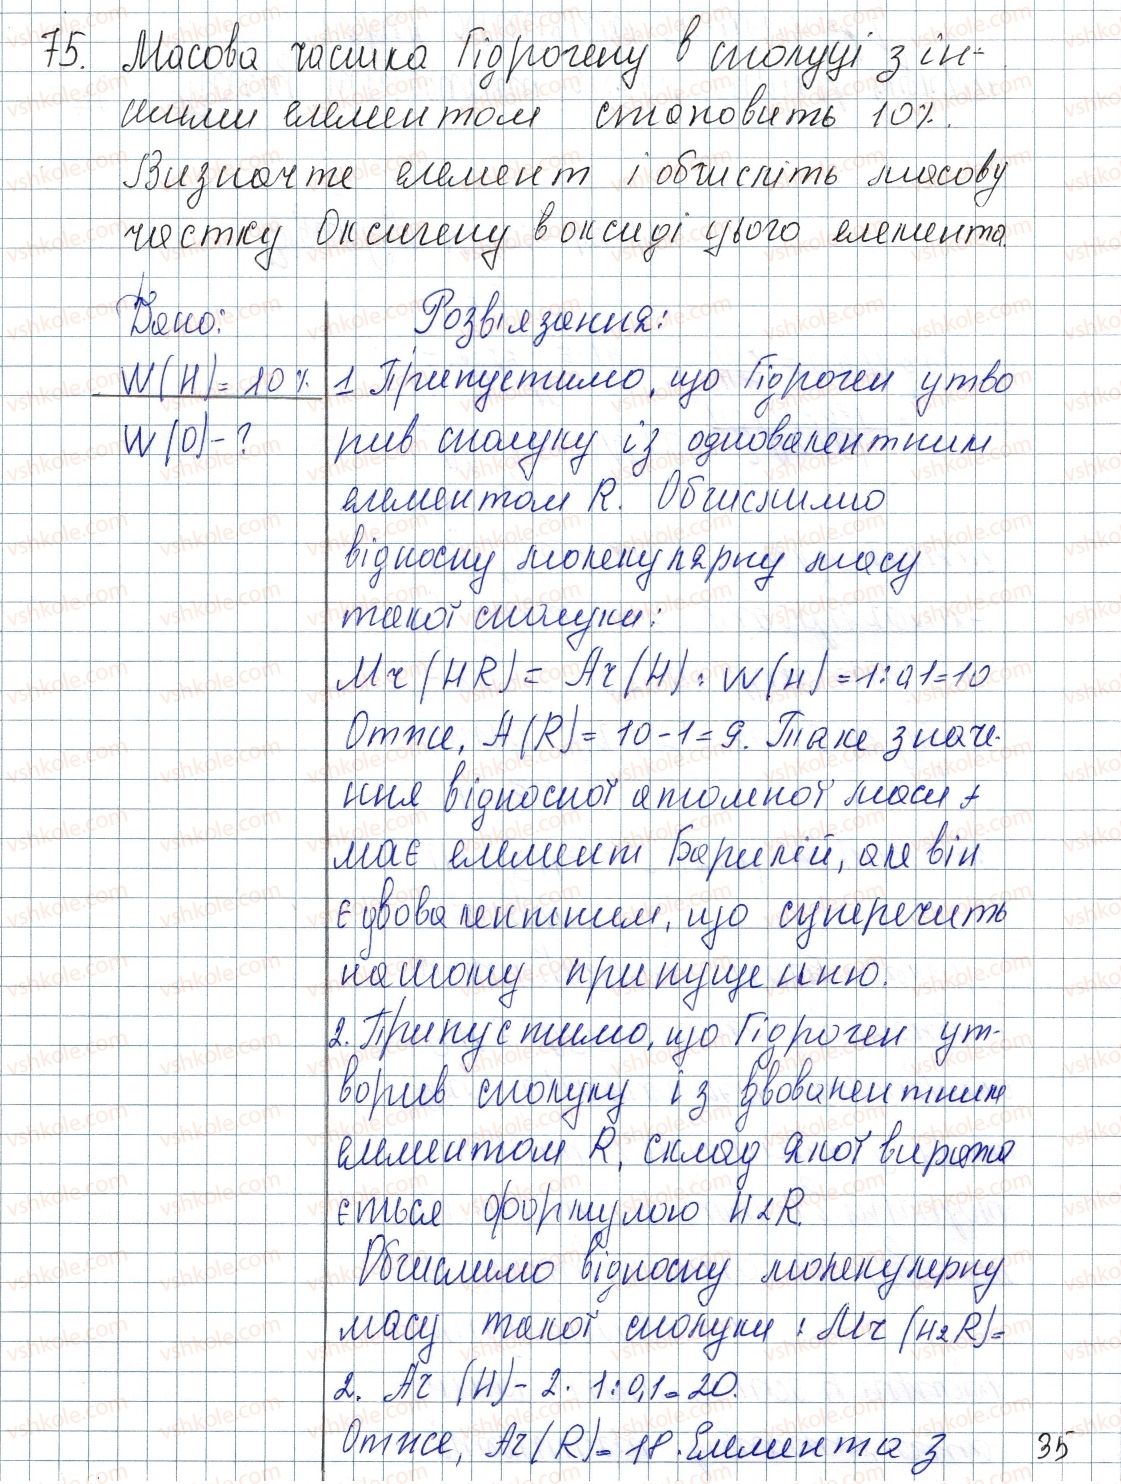 75. Масова частка Гідрогену в сполуці з ін-
шими елементом становить 10%.
Визначте елемент і обчисліть масову
частку Оксигену в оксиді цього елемента.
Дано:
W(H)=10%
W(O)-?
Розв'язання:
1 Припустимо, що Гідроген утво
рив сполуку із одновалентним
елементом R. Обчислимо
відносну молекулярну масу
такої сполуки:
Mr(HR)= Ar(H):W(H)=1:0,1=10
Отже, A(R)=10-1=9. Таке значе-
ння відносної атомної маси
має елемент Берилій, але він
є двовалентним, що суперечить
нашому припущенню.
2. Припустимо, що Гідроген ут-
ворив сполуку із двовалентним
елементом R, склад якої виража
ється формулою H2R.
Обчислимо відносну молекулярну
масу такої сполуки: Mr(H2R)=
2. Ar (H)- 2. 1:0,1=20.
Отже, Ar(R)=18. Елемента з
35